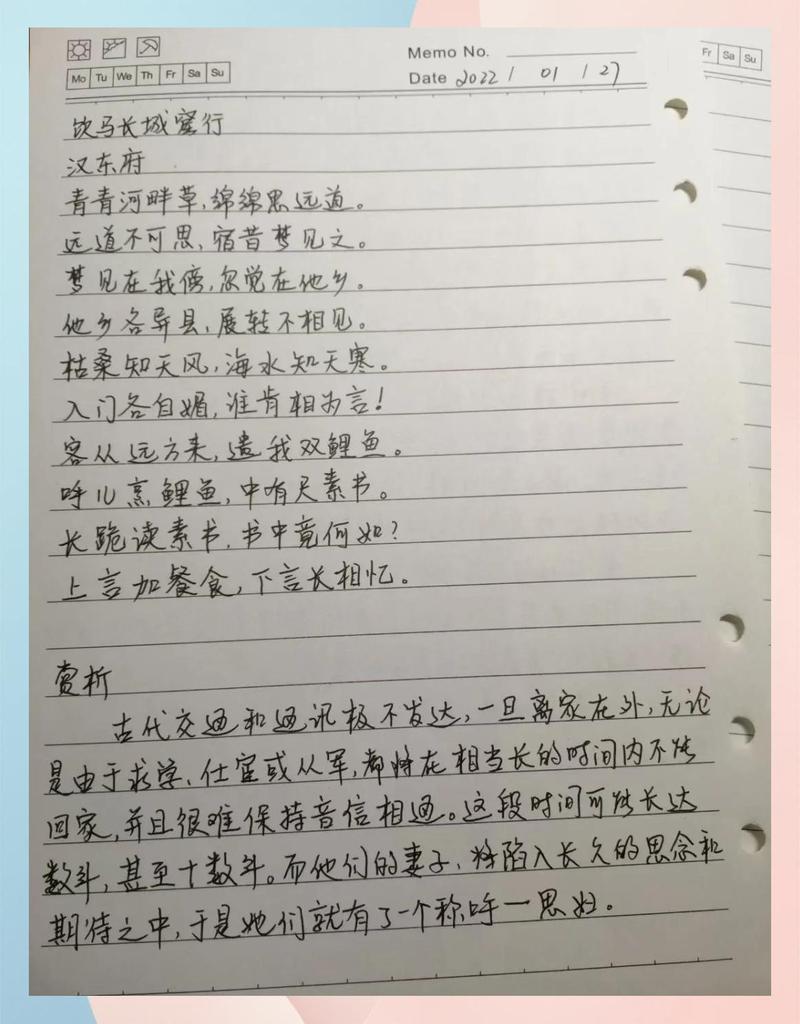 Memo No.
Mo Tu We Th Fr Sa Su
Date 2022 / 01 / 27
Fr Sa Su
饮马长城窟行
汉东府
青青河畔草,绵绵思远道。
远道不可思,宿昔梦见之。
梦见在我傍,忽觉在他乡。
他乡各异县,展转不相见。
枯桑知天风,海水知天寒。
入门各自媚,谁肯相为言!
客从远方来,遗我双鲤鱼。
呼儿烹鲤鱼,中有尺素书。
长跪读素书,书中竟何如?
上言加餐食,下言长相忆。
赏析
古代交通和通讯极不发达,一旦离家在外,无论
是由于求学、仕宦或从军,都将在相当长的时间内不能
回家,并且很难保持音信相通。这段时间可能长达
数年,甚至十数年。而他们的妻子,将陷入长久的思念和
期待之中,于是她们就有了一个称呼—思妇。